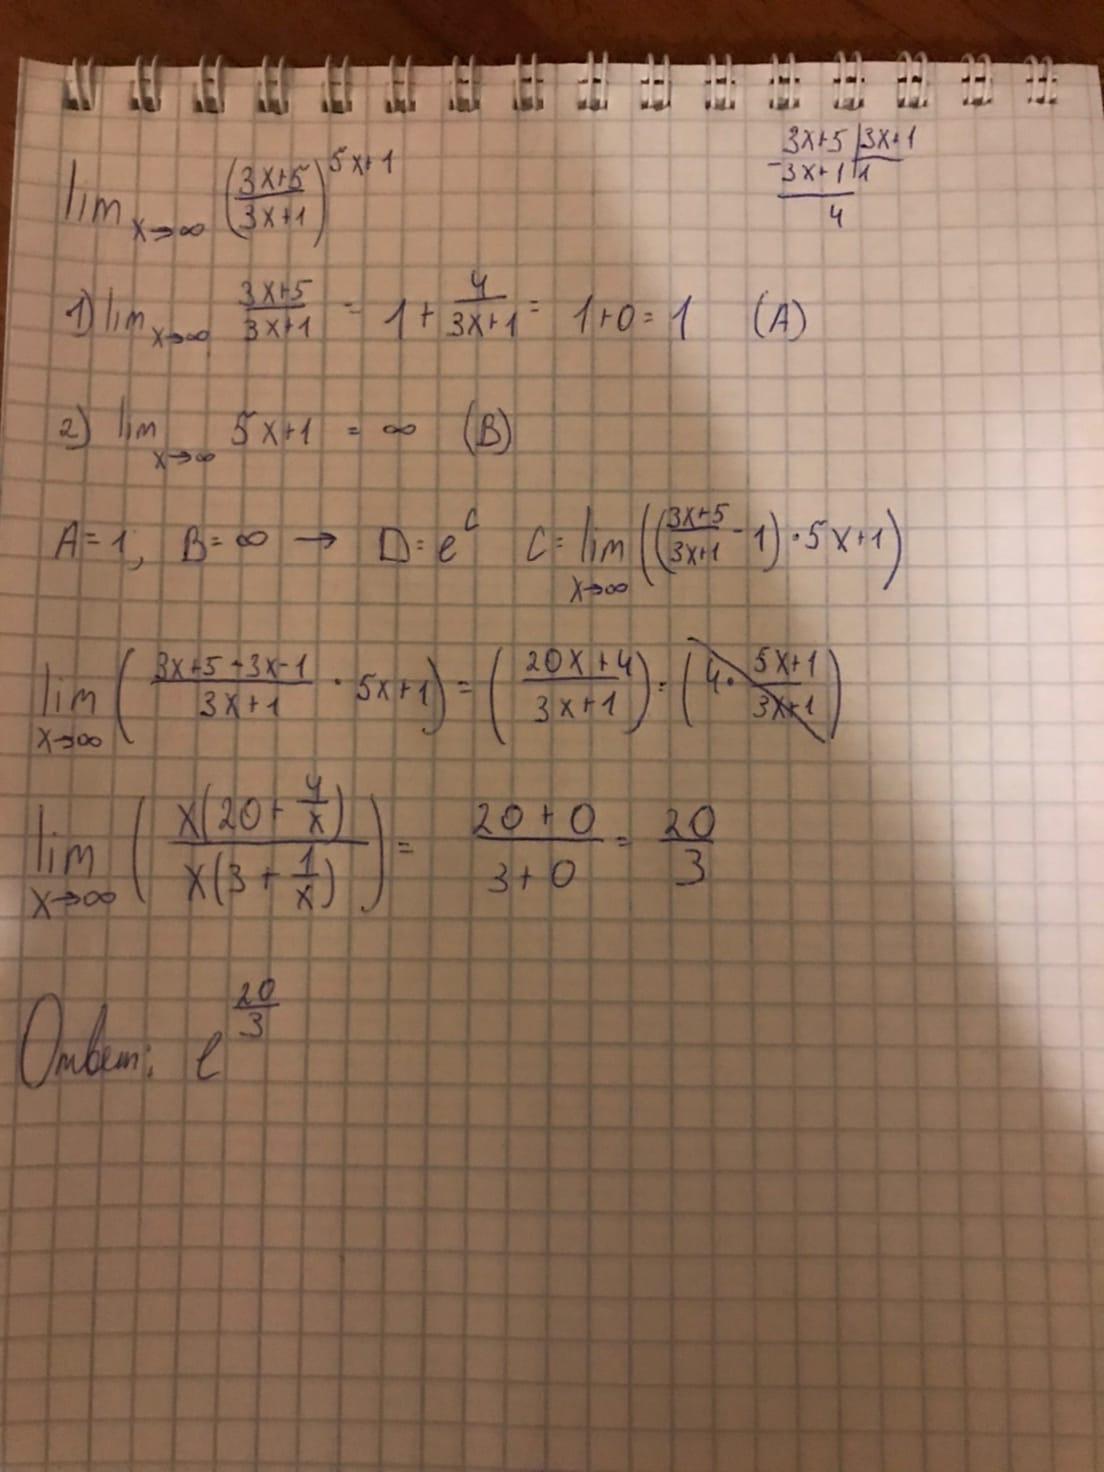 lim x→∞ ((3x+5)/(3x+1))^(5x+1)
3x+5 | 3x+1
-3x+1 | 1
4
1) lim x→∞ (3x+5)/(3x+1) = 1 + 4/(3x+1) = 1+0 = 1 (A)
2) lim x→∞ 5x+1 = ∞ (B)
A=1; B=∞ → D=e^c C= lim x→∞ (((3x+5)/(3x+1) - 1) · 5x+1)
lim x→∞ ((3x+5-3x-1)/(3x+1) · 5x+1) = ((20x+4)/(3x+1)) = (4 · (5x+1)/(3x+1))
lim x→∞ (x(20+4/x)/x(3+1/x)) = (20+0)/(3+0) = 20/3
Ответ: e^(20/3)